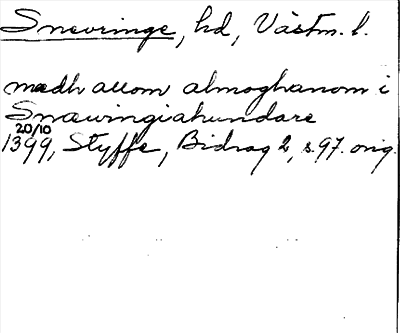 Snevringe, hd, Västm. l.
mædh allom almoghanom i
Snæwingiahundare
20/10
1399, Styffe, Bidrag 2, s. 97. orig.